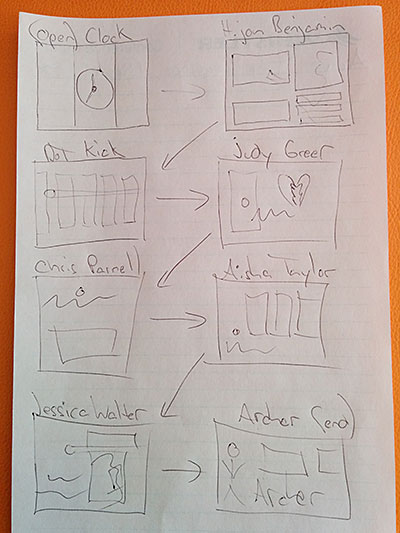 (open) Clock
H. Jon Benjamin
Dot Kick
Judy Greer
Chris Parnel
Aisha Taylor
Jessica Walter
Archer (end)
Archer